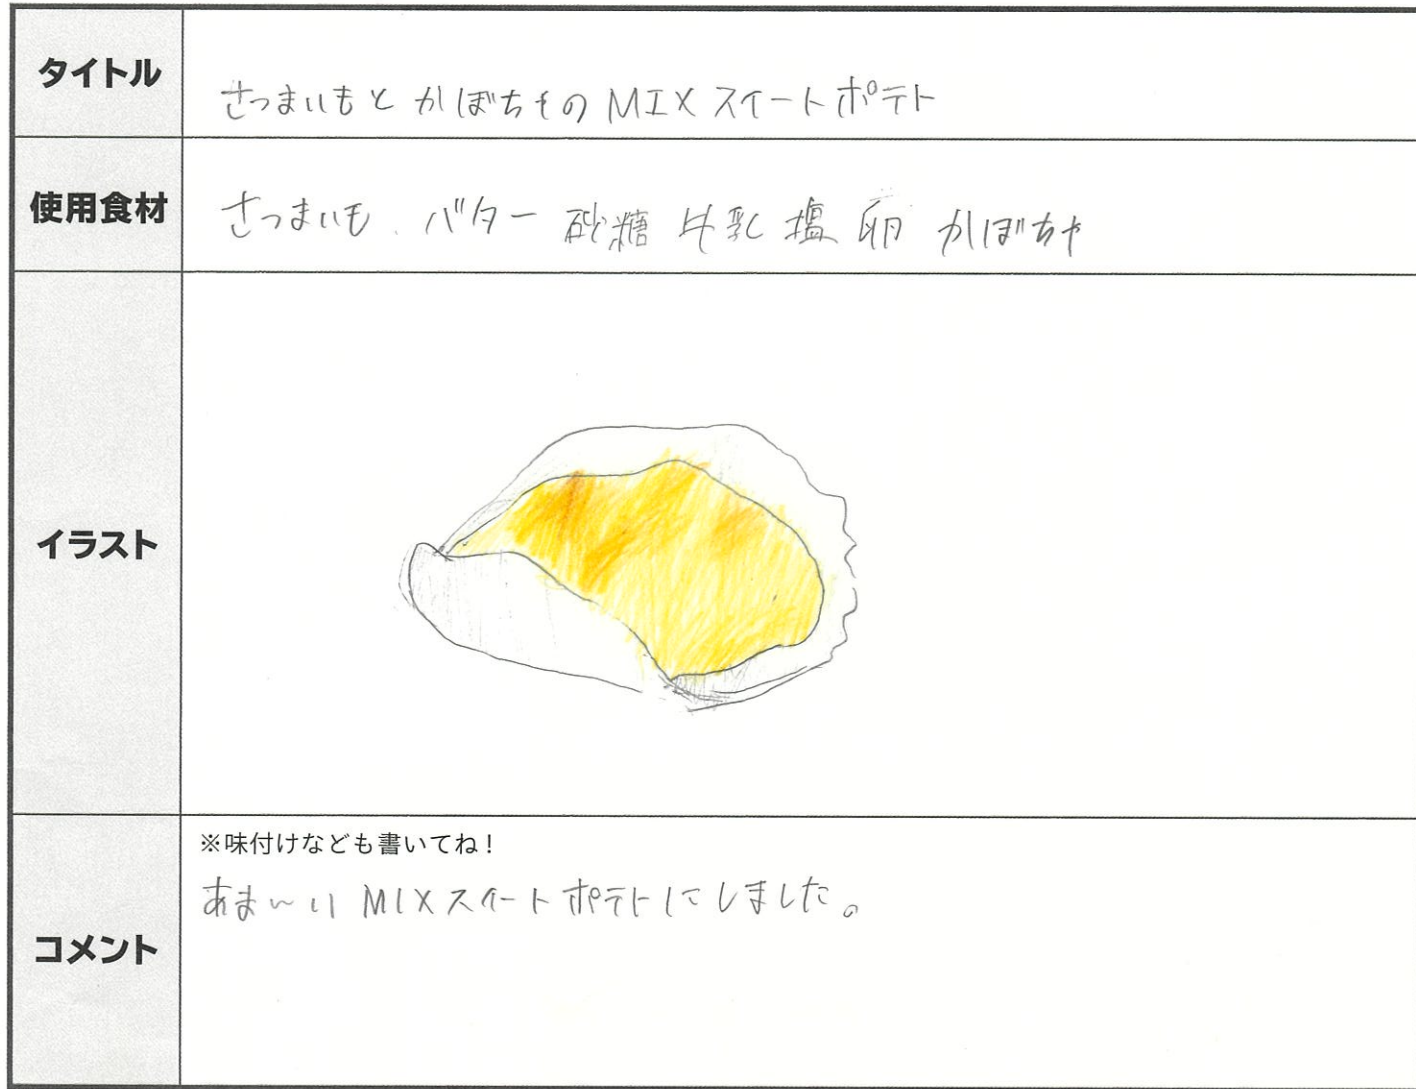 タイトル
さつまいもとかぼちゃのMIXスイートポテト
使用食材
さつまいも、バター 砂糖 牛乳 塩 卵 かぼちゃ
イラスト
※味付けなども書いてね!
あま〜いMIXスイートポテトにしました。
コメント